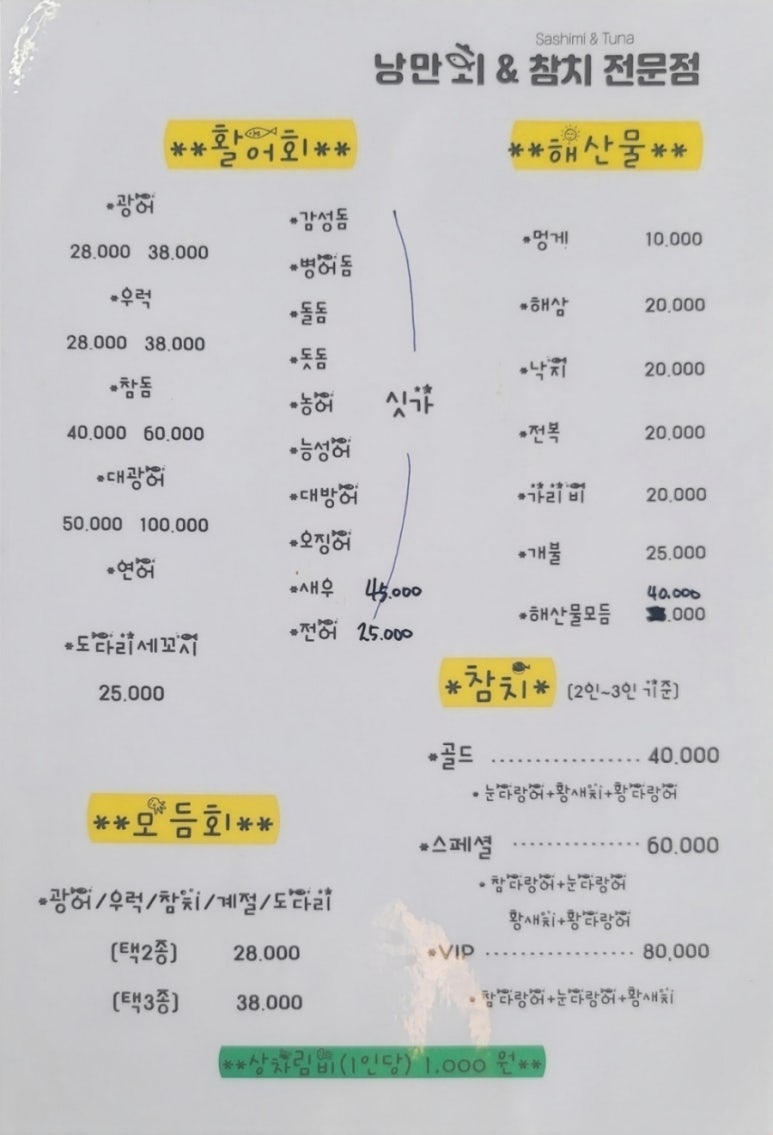 Sashimi & Tuna
낭만회 & 참치 전문점
**활어회**
*광어
28.000 38.000
*우럭
28.000 38.000
*참돔
40.000 60.000
*대광어
50.000 100.000
*연어
*도다리세꼬시
25.000
*감성돔
*병어돔
*돌돔
*돗돔
*농어
*능성어
*대방어
*오징어
*새우 45.000
*전어 25.000
싯가
**해산물**
*멍게 10.000
*해삼 20.000
*낙지 20.000
*전복 20.000
*가리비 20.000
*개불 25.000
40.000
*해산물모듬 .000
*참치* (2인~3인 기준)
*골드 .................. 40.000
*눈다랑어+황새치+황다랑어
*스페셜 ............... 60.000
*참다랑어+눈다랑어
황새치+황다랑어
*VIP .................. 80,000
*참다랑어+눈다랑어+황새치
**모듬회**
*광어/우럭/참치/계절/도다리
(택2종) 28.000
(택3종) 38.000
**상차림비(1인당) 1.000 원**